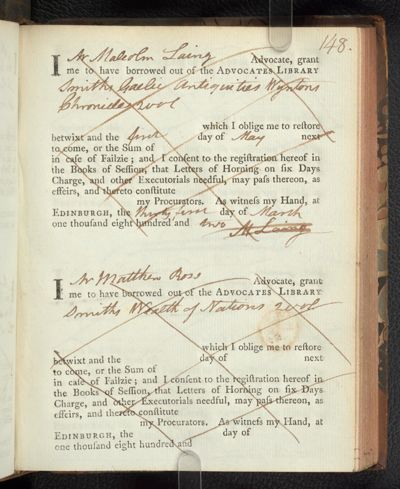 148.
I Mr Malcolm Laing Advocate, grant
me to have borrowed out of the ADVOCATES LIBRARY
Smiths Gaelic Antiquities Wyntons
Chronicle 2 vol
which I oblige me to reſtore
betwixt and the first day of May next
to come, or the Sum of
in caſe of Failzie; and I conſent to the regiſtration hereof in
the Books of Seſſion, that Letters of Horning on ſix Days
Charge, and other Executorials needful, may paſs thereon, as
effeirs, and thereto conſtitute
my Procurators. As witneſs my Hand, at
EDINBURGH, the thirty first day of March
one thouſand eight hundred and two M Laing
I Mr Matthew Ross Advocate, grant
me to have borrowed out of the ADVOCATES LIBRARY
Smiths Wealth of Nations 2 vol
which I oblige me to reſtore
betwixt and the day of next
to come, or the Sum of
in caſe of Failzie; and I conſent to the regiſtration hereof in
the Books of Seſſion, that Letters of Horning on ſix Days
Charge, and other Executorials needful, may paſs thereon, as
effeirs, and thereto conſtitute
my Procurators. As witneſs my Hand, at
EDINBURGH, the day of
one thouſand eight hundred and